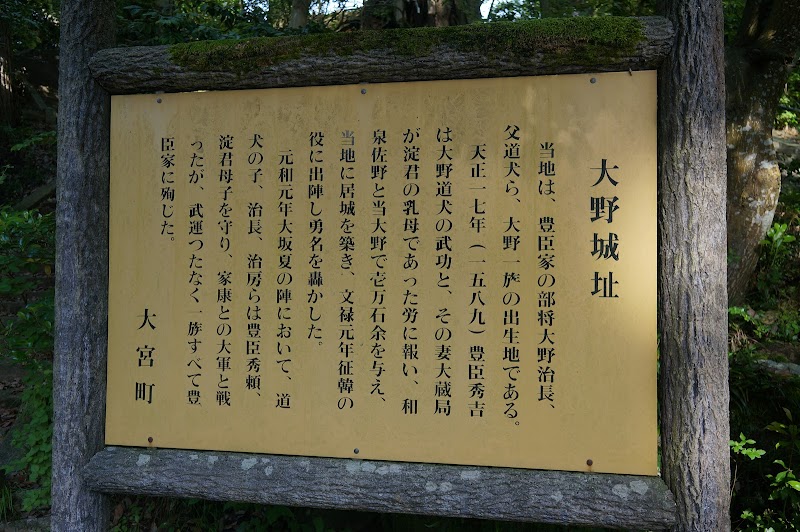 大野城址
当地は、豊臣家の部将大野治長、
父道犬ら、大野一族の出生地である。
天正一七年（一五八九）豊臣秀吉
は大野道犬の武功と、その妻大蔵局
が淀君の乳母であった労に報い、和
泉佐野と当大野で壱万石余を与え、
当地に居城を築き、文禄元年征韓の
役に出陣し勇名を轟かした。
元和元年大坂夏の陣において、道
犬の子、治長、治房らは豊臣秀頼、
淀君母子を守り、家康との大軍と戦
ったが、武運つたなく一族すべて豊
臣家に殉じた。
大宮町